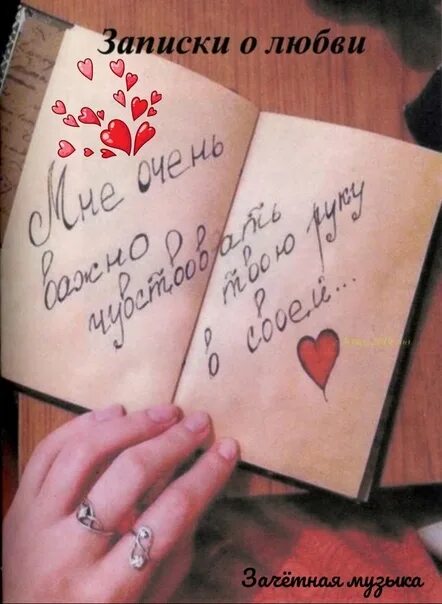 Записки о любви
Мне очень
важно
чувствовать
твою руку
в своей...
Зачётная музыка